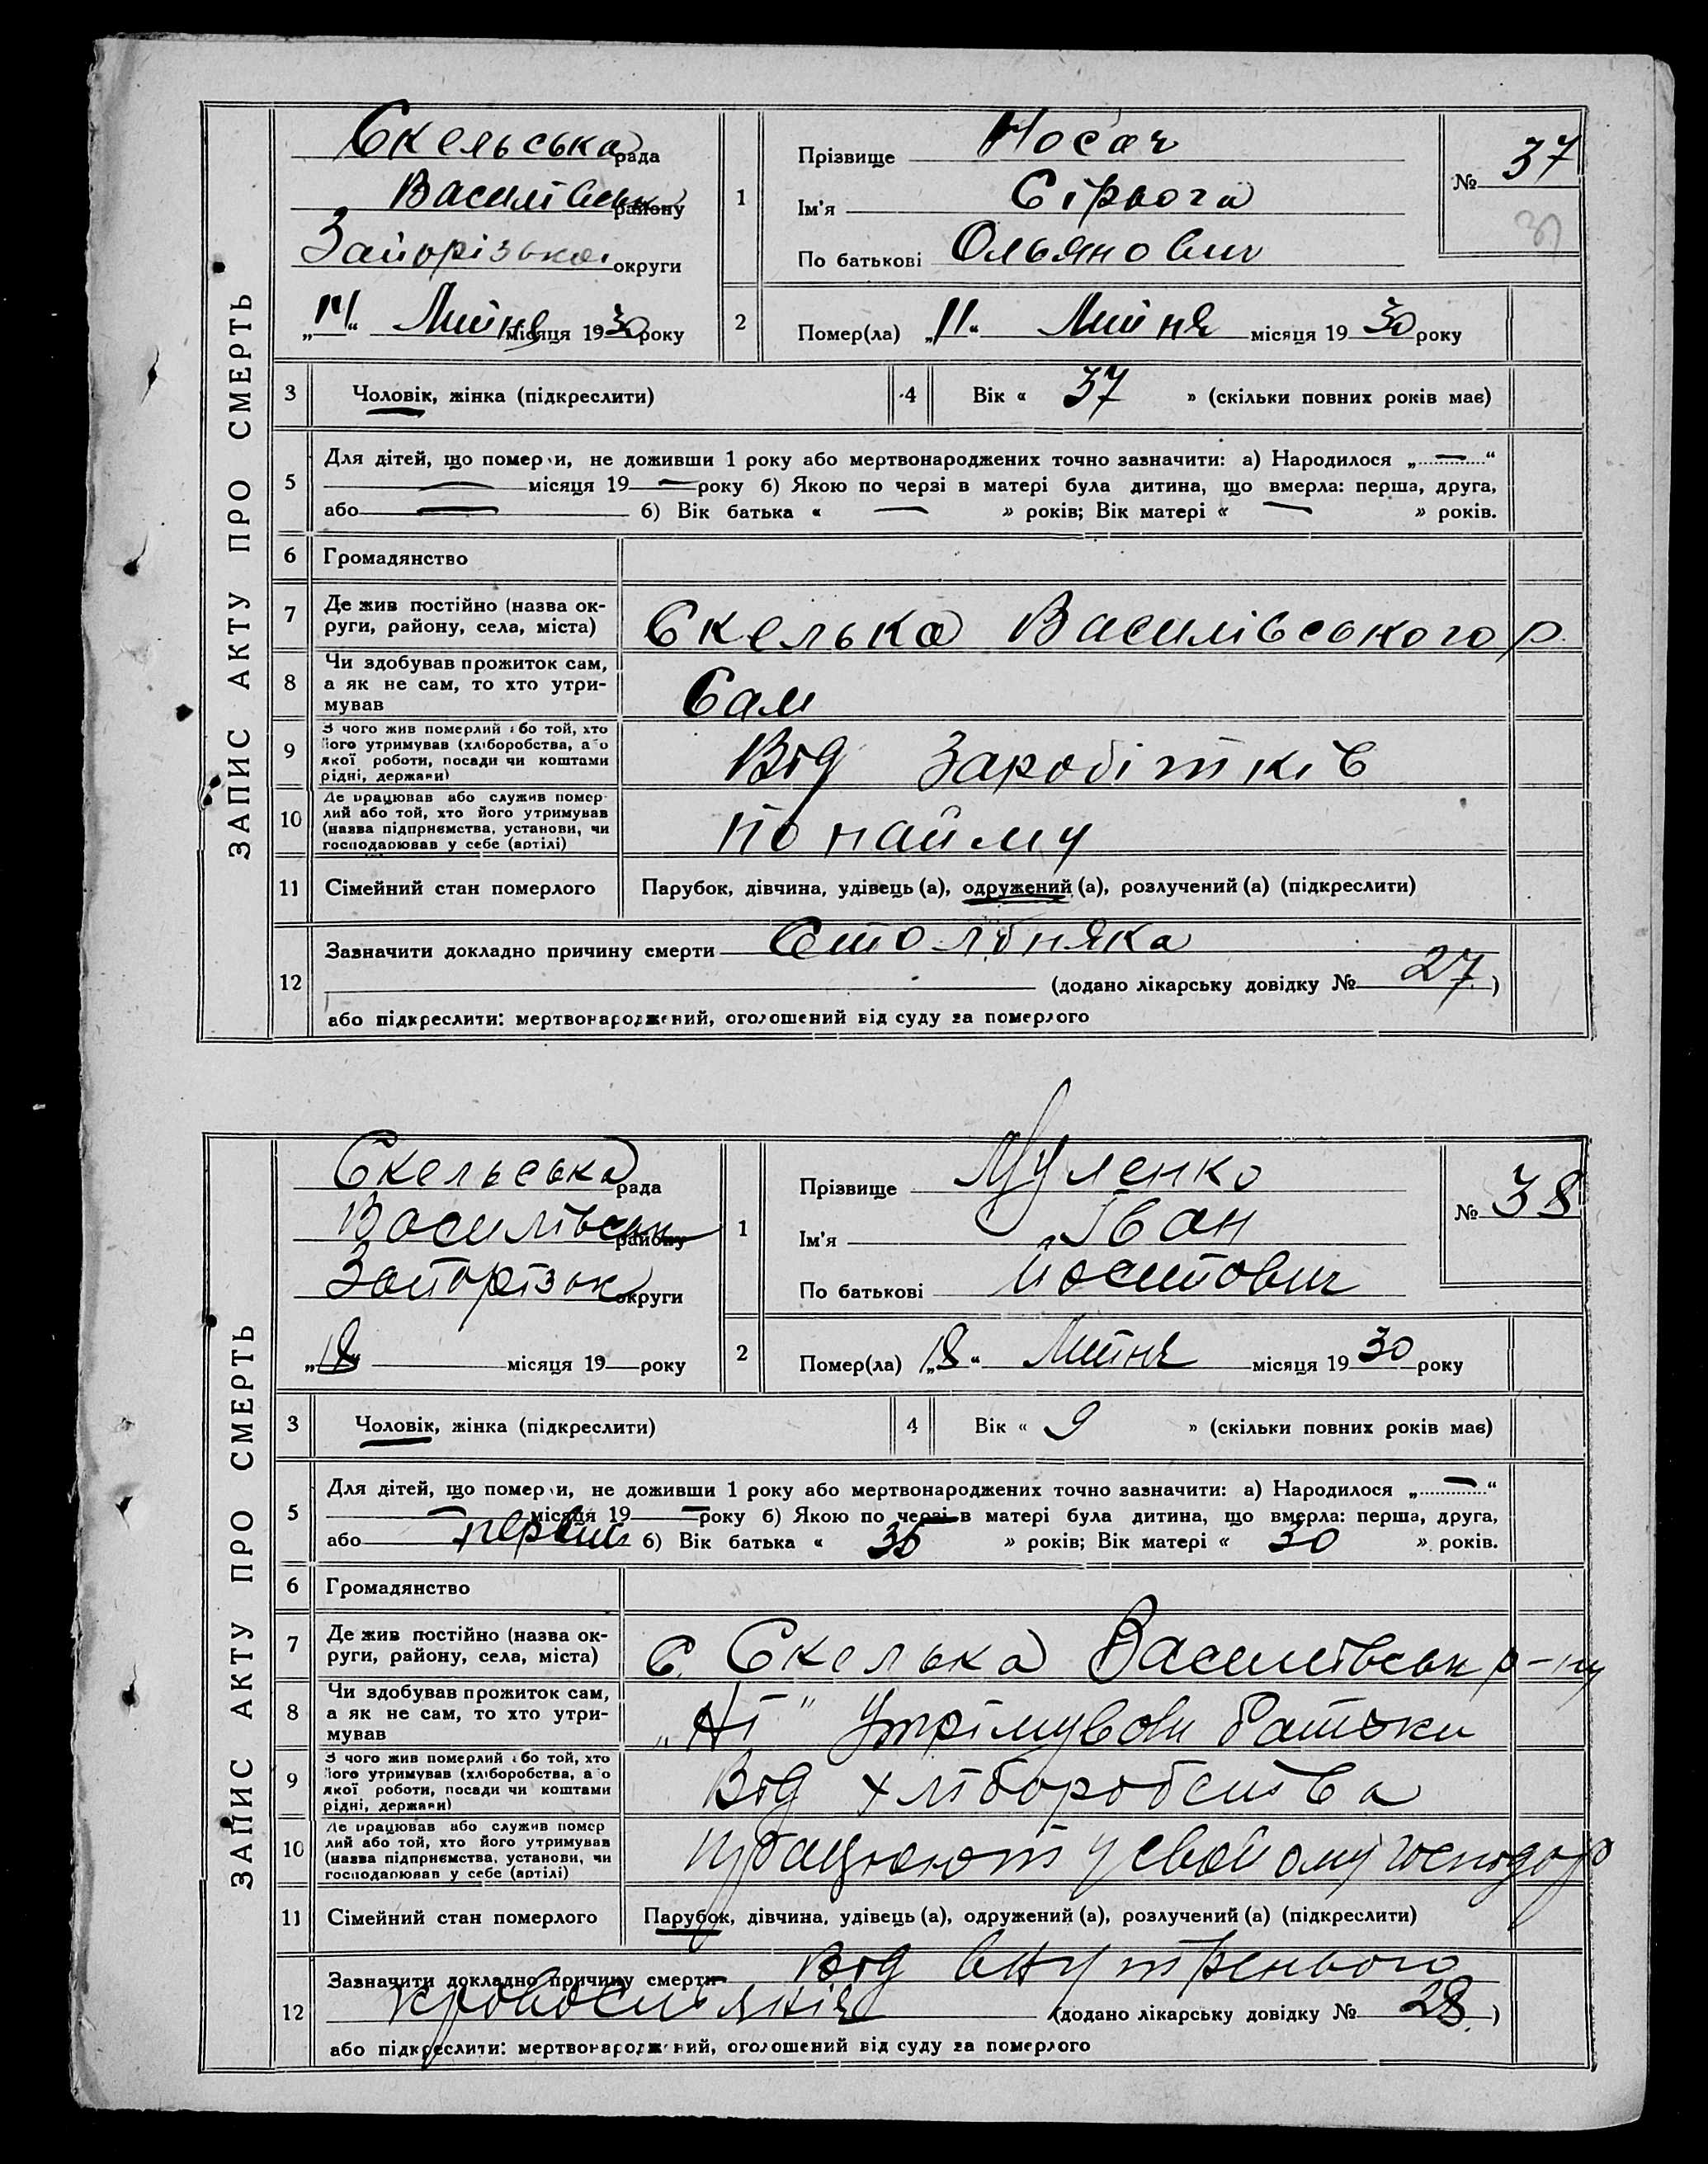 ЗАПИС АКТУ ПРО СМЕРТЬ
Скельська рада
Василівськ району
Запорізької округи
Липня місяця 1930 року
1
Прізвище Носач
Ім'я Сірьога
По батькові Ольянович
№ 37
37
2
Помер(ла) „11“ Липня місяця 19 30 року
3 Чоловік, жінка (підкреслити)
4 Вік « 37 » (скільки повних років має)
5 Для дітей, що померли, не доживши 1 року або мертвонароджених точно зазначити: а) Народилося „—“
— місяця 19 — року б) Якою по черзі в матері була дитина, що вмерла: перша, друга,
або — б) Вік батька « — » років; Вік матері « — » років.
6 Громадянство
7 Де жив постійно (назва ок-
руги, району, села, міста) Скелька Василівського р.
8 Чи здобував прожиток сам,
а як не сам, то хто утри-
мував Сам
9 З чого жив померлий або той, хто
його утримував (хліборобства, або
якої роботи, посади чи коштами
рідні, держави) Від Заробітків
10 Де працював або служив помер-
лий або той, хто його утримував
(назва підприємства, установи, чи
господарював у себе (артілі) По найму
11 Сімейний стан померлого Парубок, дівчина, удівець (а), одружений (а), розлучений (а) (підкреслити)
12 Зазначити докладно причину смерти Столбняка
(додано лікарську довідку № 27.)
або підкреслити: мертвонароджений, оголошений від суду за померлого
ЗАПИС АКТУ ПРО СМЕРТЬ
Скельська рада
Василівськ району
Запорізьк округи
„18“ місяця 19 року
1
Прізвище Муленко
Ім'я Іван
По батькові Йосипович
№ 38
2
Помер(ла) „18“ Липня місяця 19 30 року
3 Чоловік, жінка (підкреслити)
4 Вік « 9 » (скільки повних років має)
5 Для дітей, що померли, не доживши 1 року або мертвонароджених точно зазначити: а) Народилося „—“
— місяця 19 — року б) Якою по черзі в матері була дитина, що вмерла: перша, друга,
або первий б) Вік батька « 35 » років; Вік матері « 30 » років.
6 Громадянство
7 Де жив постійно (назва ок-
руги, району, села, міста) С. Скелька Василівськ р-ну
8 Чи здобував прожиток сам,
а як не сам, то хто утри-
мував „Ні“ Утрімували батьки
9 З чого жив померлий або той, хто
його утримував (хліборобства, або
якої роботи, посади чи коштами
рідні, держави) Від хліборобства
10 Де працював або служив помер
лий або той, хто його утримував
(назва підприємства, установи, чи
господарював у себе (артілі) Працюют у свойому господар
11 Сімейний стан померлого Парубок, дівчина, удівець (а), одружений (а), розлучений (а) (підкреслити)
12 Зазначити докладно причину смерти Від внутренього
(додано лікарську довідку № 28.)
або підкреслити: мертвонароджений, оголошений від суду за померлого